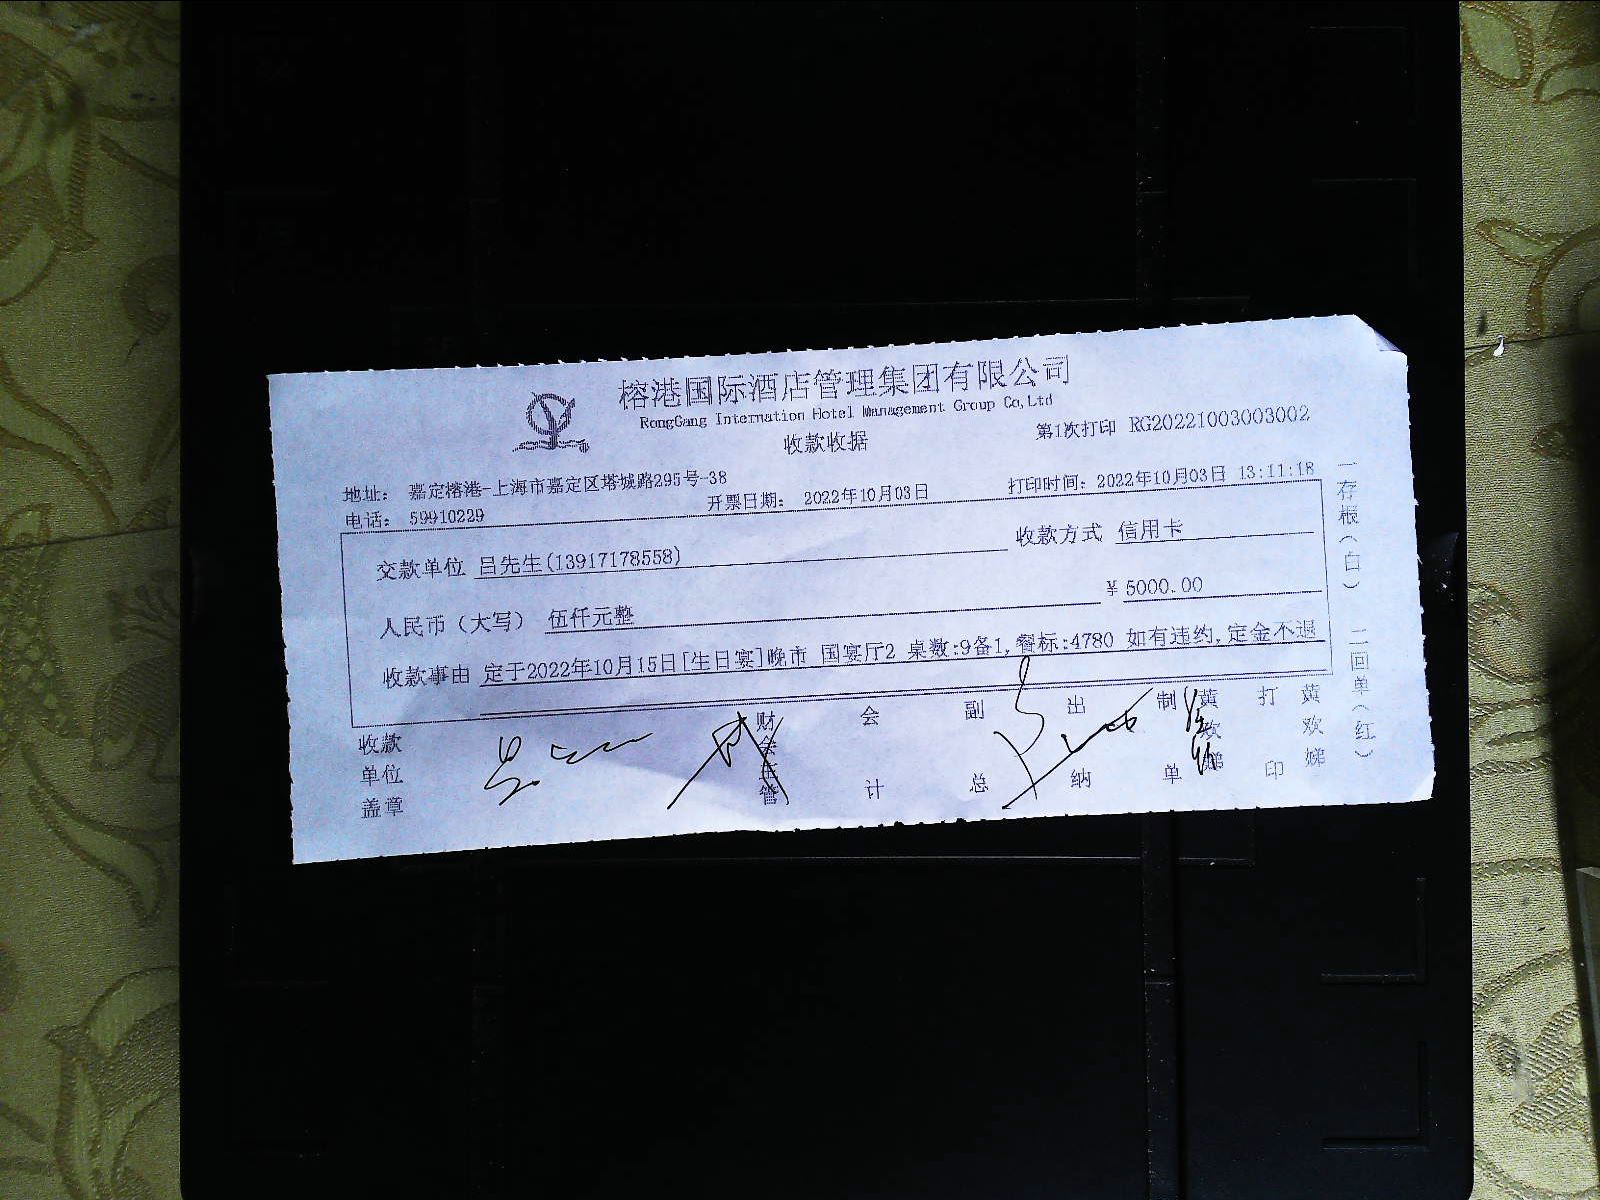 榕港国际酒店管理集团有限公司
RongGang Internation Hotel Management Group Co,Ltd
收款收据
第1次打印 RG20221003003002
地址： 嘉定榕港-上海市嘉定区塔城路295号-38
电话： 59910229
开票日期： 2022年10月03日
打印时间： 2022年10月03日 13:11:18
交款单位 吕先生(13917178558)
收款方式 信用卡
人民币（大写） 伍仟元整
¥ 5000.00
收款事由 定于2022年10月15日[生日宴]晚市 国宴厅2 桌数:9备1,餐标:4780 如有违约,定金不退
收款单位盖章
财务主管
会计
副总
出纳
制单
黄欢娣
打印
黄欢娣
一存根（白）
二回单（红）